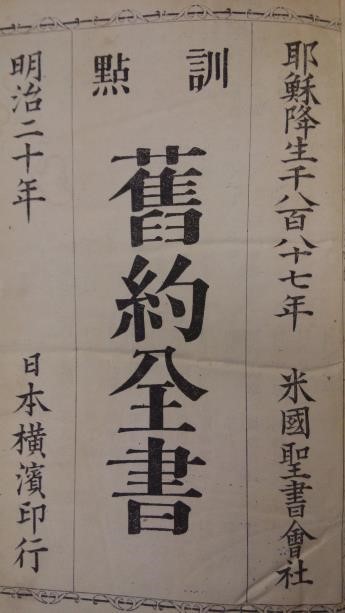 耶穌降生千八百八十七年　米國聖書會社
訓點
舊約全書
明治二十年　日本橫濱印行